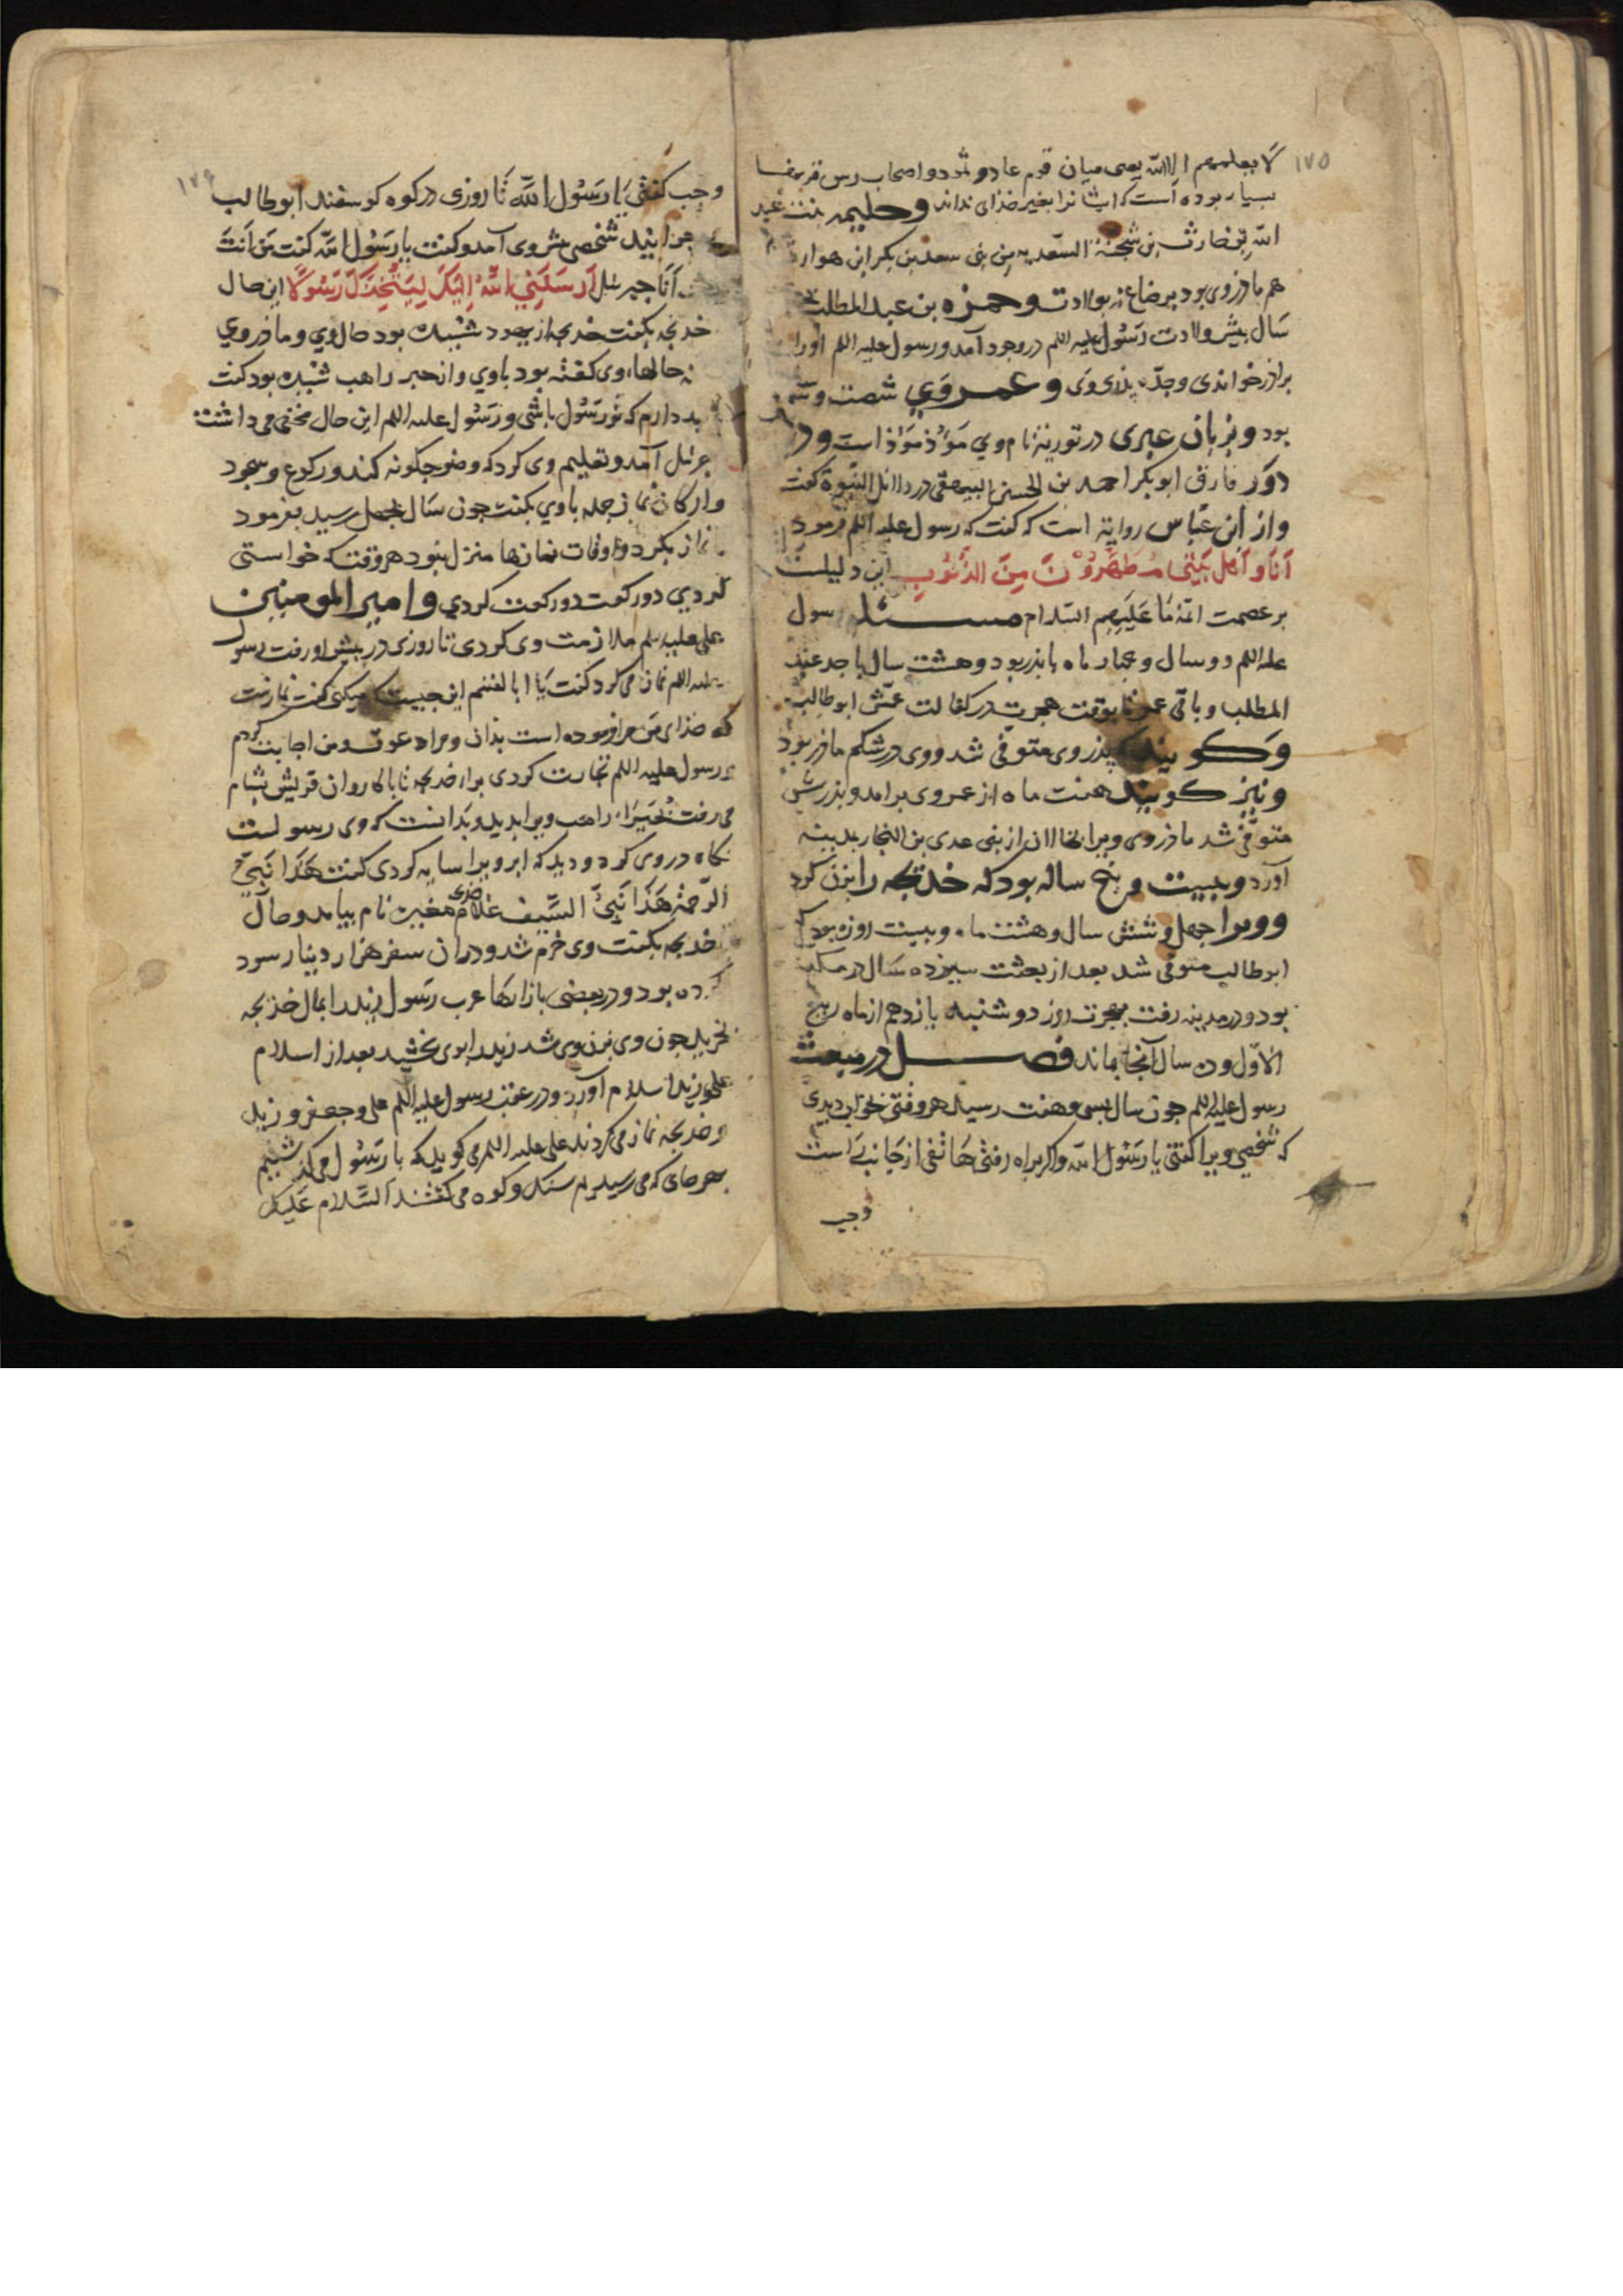 ۱۷۵
لا یعلمهم الا الله یعنی میان قوم عاد و ثمود و اصحاب رس قرنها
بسیار بوده است که ایشانرا بغیر خذای نداند وحلیمه بنت عبد
الله بن حارث بن شجنة السعدیه من بنی سعد بن بکر ابن هوازن
هم ماذر وی بود برضاع نه بولادت وحمزه بن عبد المطلب
سال پیش ولادت رسول علیه اللم در وجود آمد و رسول علیه اللم اورا
براذر خواندی وجد بذری وی و عمر وی شصت و سه
بود و بزبان عبری در توریة نام وی مؤذ مؤاذ است و در
دور فارق ابو بکر احمد بن الحسن البیهقی در دلائل النبوة کفت
و از ابن عباس روایة است که کفت که رسول علیه اللم فرمود
اَنَا وَ اَهل بَیتی مُطَهَّرُوْنَ مِنَ الذُّنُوبِ این دلیلست
بر عصمت ائمه ما عَلَیهِم السلام مسئله رسول
علیه اللم دو سال و جهار ماه با بذر بود و هشت سال با جد عبد
المطلب و باقی عمر تا بوقت هجرت در کفالت عمش ابو طالب
وکویند که پذر وی متوفی شد و وی در شکم ماذر بود
و نیز کویند هفت ماه از عمر وی برامد و بذرش
متوفی شد ماذر وی ویرا بخالان از بنی عدی بن النجار بمدینه
آورد و بیست و پنج ساله بود که خدیجه را بزن کرد
و ویرا جهل و شش سال و هشت ماه و بیست روز بود که
ابو طالب متوفی شد بعد از بعثت سیزده سال در مکه
بود و در مدینه رفت بهجرت روز دو شنبه یازدهم از ماه ربیع
الاول و ده سال آنجا بماند فصل در مبعث
رسول علیه اللم جون سال بسی و هفت رسید هر وقتی خواب دیدی
که شخصی ویرا کفتی یا رَسُول الله و اکر براه رفتی هاتفی از جانب راست
و جب
۱۷۶
و جب کفتی یَا رَسُول اللّه تَا روزی در کوه کوسفند ابو طالب
جرانید شخصی بر وی آمد و کفت یا رَسُول الله کفت مَن اَنتَ
اَنَا جبرئل اَرسَلَنِی اللّهُ اِلَیکَ لِیَتَّخِذَکَ رَسُولًا این حال
خدیجه بکفت خدیجه از یهود شنیده بود حال وی و ماذر وی
نه حالها، وی کفته بود با وی و از حبر راهب شنیده بود کفت
امید دارم که تو رَسُول باشی و رَسُول علیه اللم این حال مخفی می داشت
جبرئل آمد و تعلیم وی کرد که وضو جکونه کند و رکوع و سجود
و ارکان نماز جمله با وی بکفت جون سال جهل رسید بفرمود
نماز بکرد و اوقات نمازها منزل نبود هر وقت که خواستی
کردی دو رکعت دو رکعت کردی و امیر المومنین
علی علیه سلم ملازمت وی کردی تا روزی در پیش او رفت رسول
علیه اللم نماز می کرد کفت یا ابا القسم این جیست که میکنی کفت نمازیست
که خذای من مرا فرموده است بذان و مرا دعوت و من اجابت کردم
و رسول علیه اللم تجارت کردی برا خدیجه تا با کاروان قریش بشام
می رفت بُحَیرَا، راهب ویرا بدید و بدانست که وی رسولست
نکاه در وی کرد و دید که ابر ویرا سایه کردی کفت هَذَا نَبِیُّ
الرّحمة هَذَا نَبِیُّ السَّیف غلام خدیجه مغیث نام بیامد و حال
خدیجه بکفت وی خرم شد و دران سفر هزار دینار سود
کرده بود و در بعضی بازارها عرب رَسُول زید را بمال خذیجه
بخرید جون وی بزن وی شد زید را بوی بخشید بعد از اسلام
علی زید اسلام آورد و در عقب رسول علیه اللم علی و جعفر و زید
و خدیجه نماز می کردند علی علیه اللم می کوید که با رَسُول می کذشتیم
بهر جای که می رسیدیم سنک و کوه می کفتند السّلام عَلَیکَ